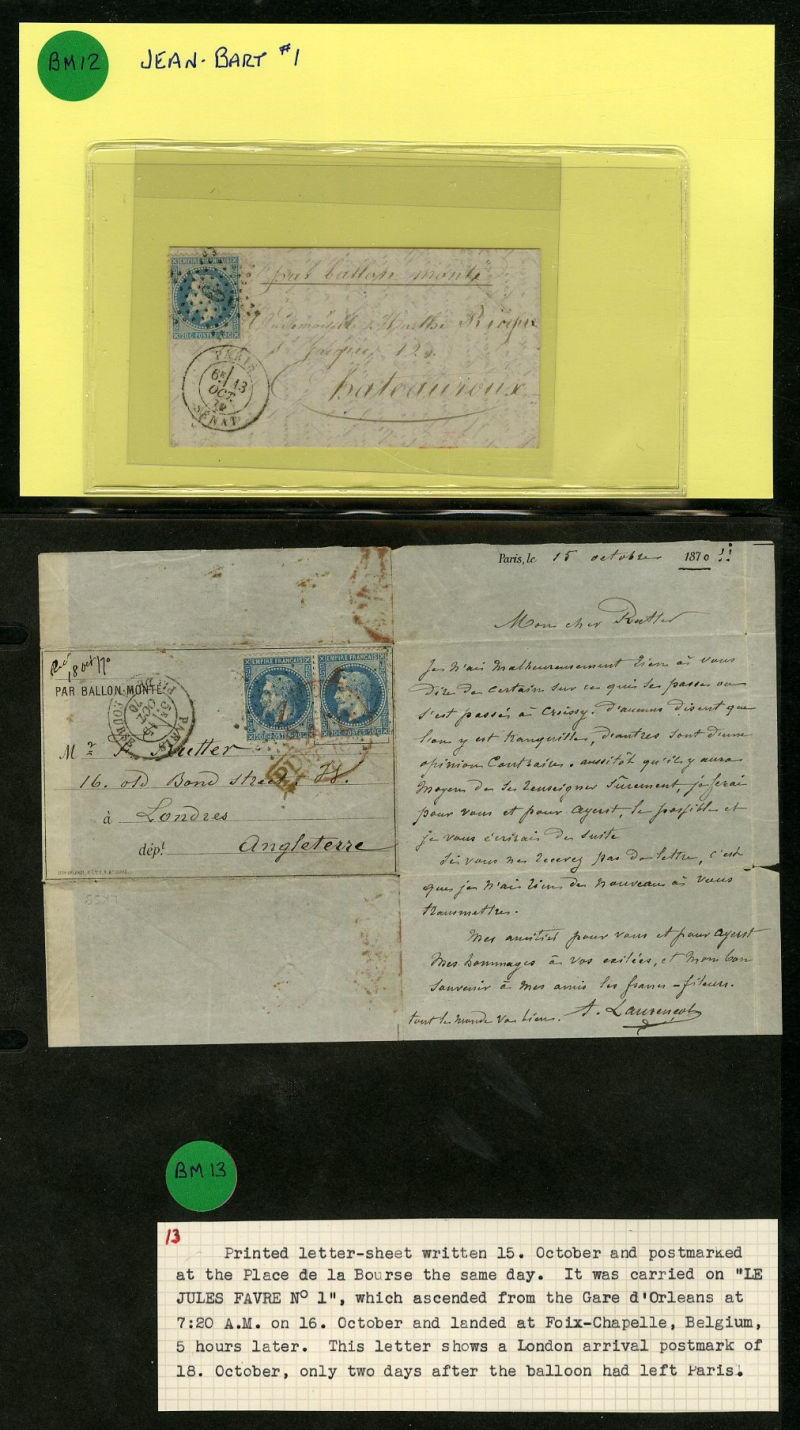 BM12 JEAN-BART #1
par ballon monté
EMPIRE FRANÇAIS
20 C POSTES 20 C
Mademoiselle Marthe
St Jacques 12
Chateauroux
PARIS
6E 13
OCT.
70
SENAT
Paris, le 15 octobre 1870
Mon cher Rutter
Je n'ai malheureusement rien à vous
dire de certain sur ce qui se passe ou
s'est passé à Croissy. D'aucuns disent que
l'on y est tranquille, d'autres sont d'une
opinion contraire. aussitôt qu'il y aura
moyen de se renseigner surement, je ferai
pour vous et pour Ayerst, le possible et
je vous écrirai de suite
Si vous ne recevez pas de lettre, c'est
que je n'ai rien de nouveau à vous
transmettre.
Mes amitiés pour vous et pour Ayerst
Mes hommages à vos exilées, et mon bon
souvenir à mes amis les francs-fileurs.
tout le monde va bien. A. Laurencot
18 oct 70
PAR BALLON MONTÉ
EMPIRE FRANÇAIS EMPIRE FRANÇAIS
20 C POSTES 20 C 20 C POSTES 20 C
PARIS
15
OCT
70
Mr Rutter
16. old Bond street
à Londres
dépt Angleterre
BM13
13
Printed letter-sheet written 15. October and postmarked
at the Place de la Bourse the same day. It was carried on "LE
JULES FAVRE Nº 1", which ascended from the Gare d'Orleans at
7:20 A.M. on 16. October and landed at Foix-Chapelle, Belgium,
5 hours later. This letter shows a London arrival postmark of
18. October, only two days after the balloon had left Paris.